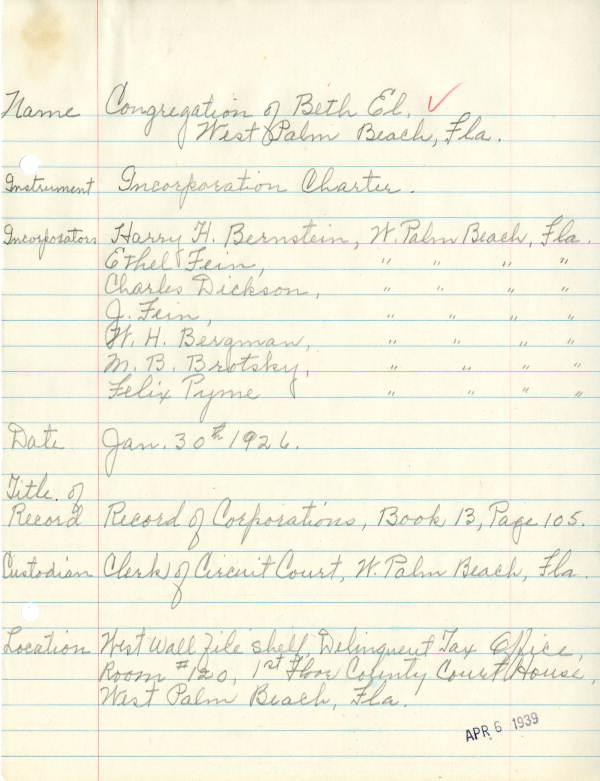 Name Congregation of Beth El.
West Palm Beach, Fla.
Instrument Incorporation Charter.
Incorporators Harry H. Bernstein, W. Palm Beach, Fla.
Ethel Fein, " " " "
Charles Dickson, " " " "
J. Fein, " " " "
W. H. Bergman, " " " "
M. B. Brotsky, " " " "
Felix Pyme " " " "
Date Jan. 30th 1926.
Title of
Record Record of Corporations, Book 13, Page 105.
Custodian Clerk of Circuit Court, W. Palm Beach, Fla.
Location West Wall file shelf Delinquent Tax Office,
Room #120, 1st Floor County Court House,
West Palm Beach, Fla.
APR 6 1939